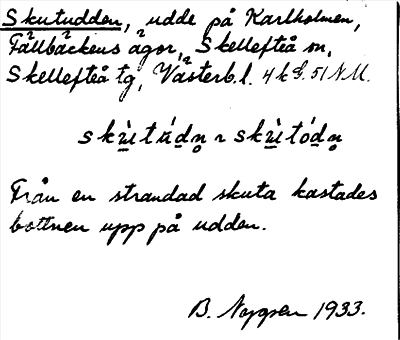 Skutudden, udde på Karlholmen,
Fällbäckens ägor, Skellefteå sn,
Skellefteå tg, Västerb. l. 4 k S. 51 N.M.
skὺ̠itúd̠n̥ ~ skὺ̠itód̠n̥
Från en strandad skuta kastades
bottnen upp på udden.
B. Norgren 1933.